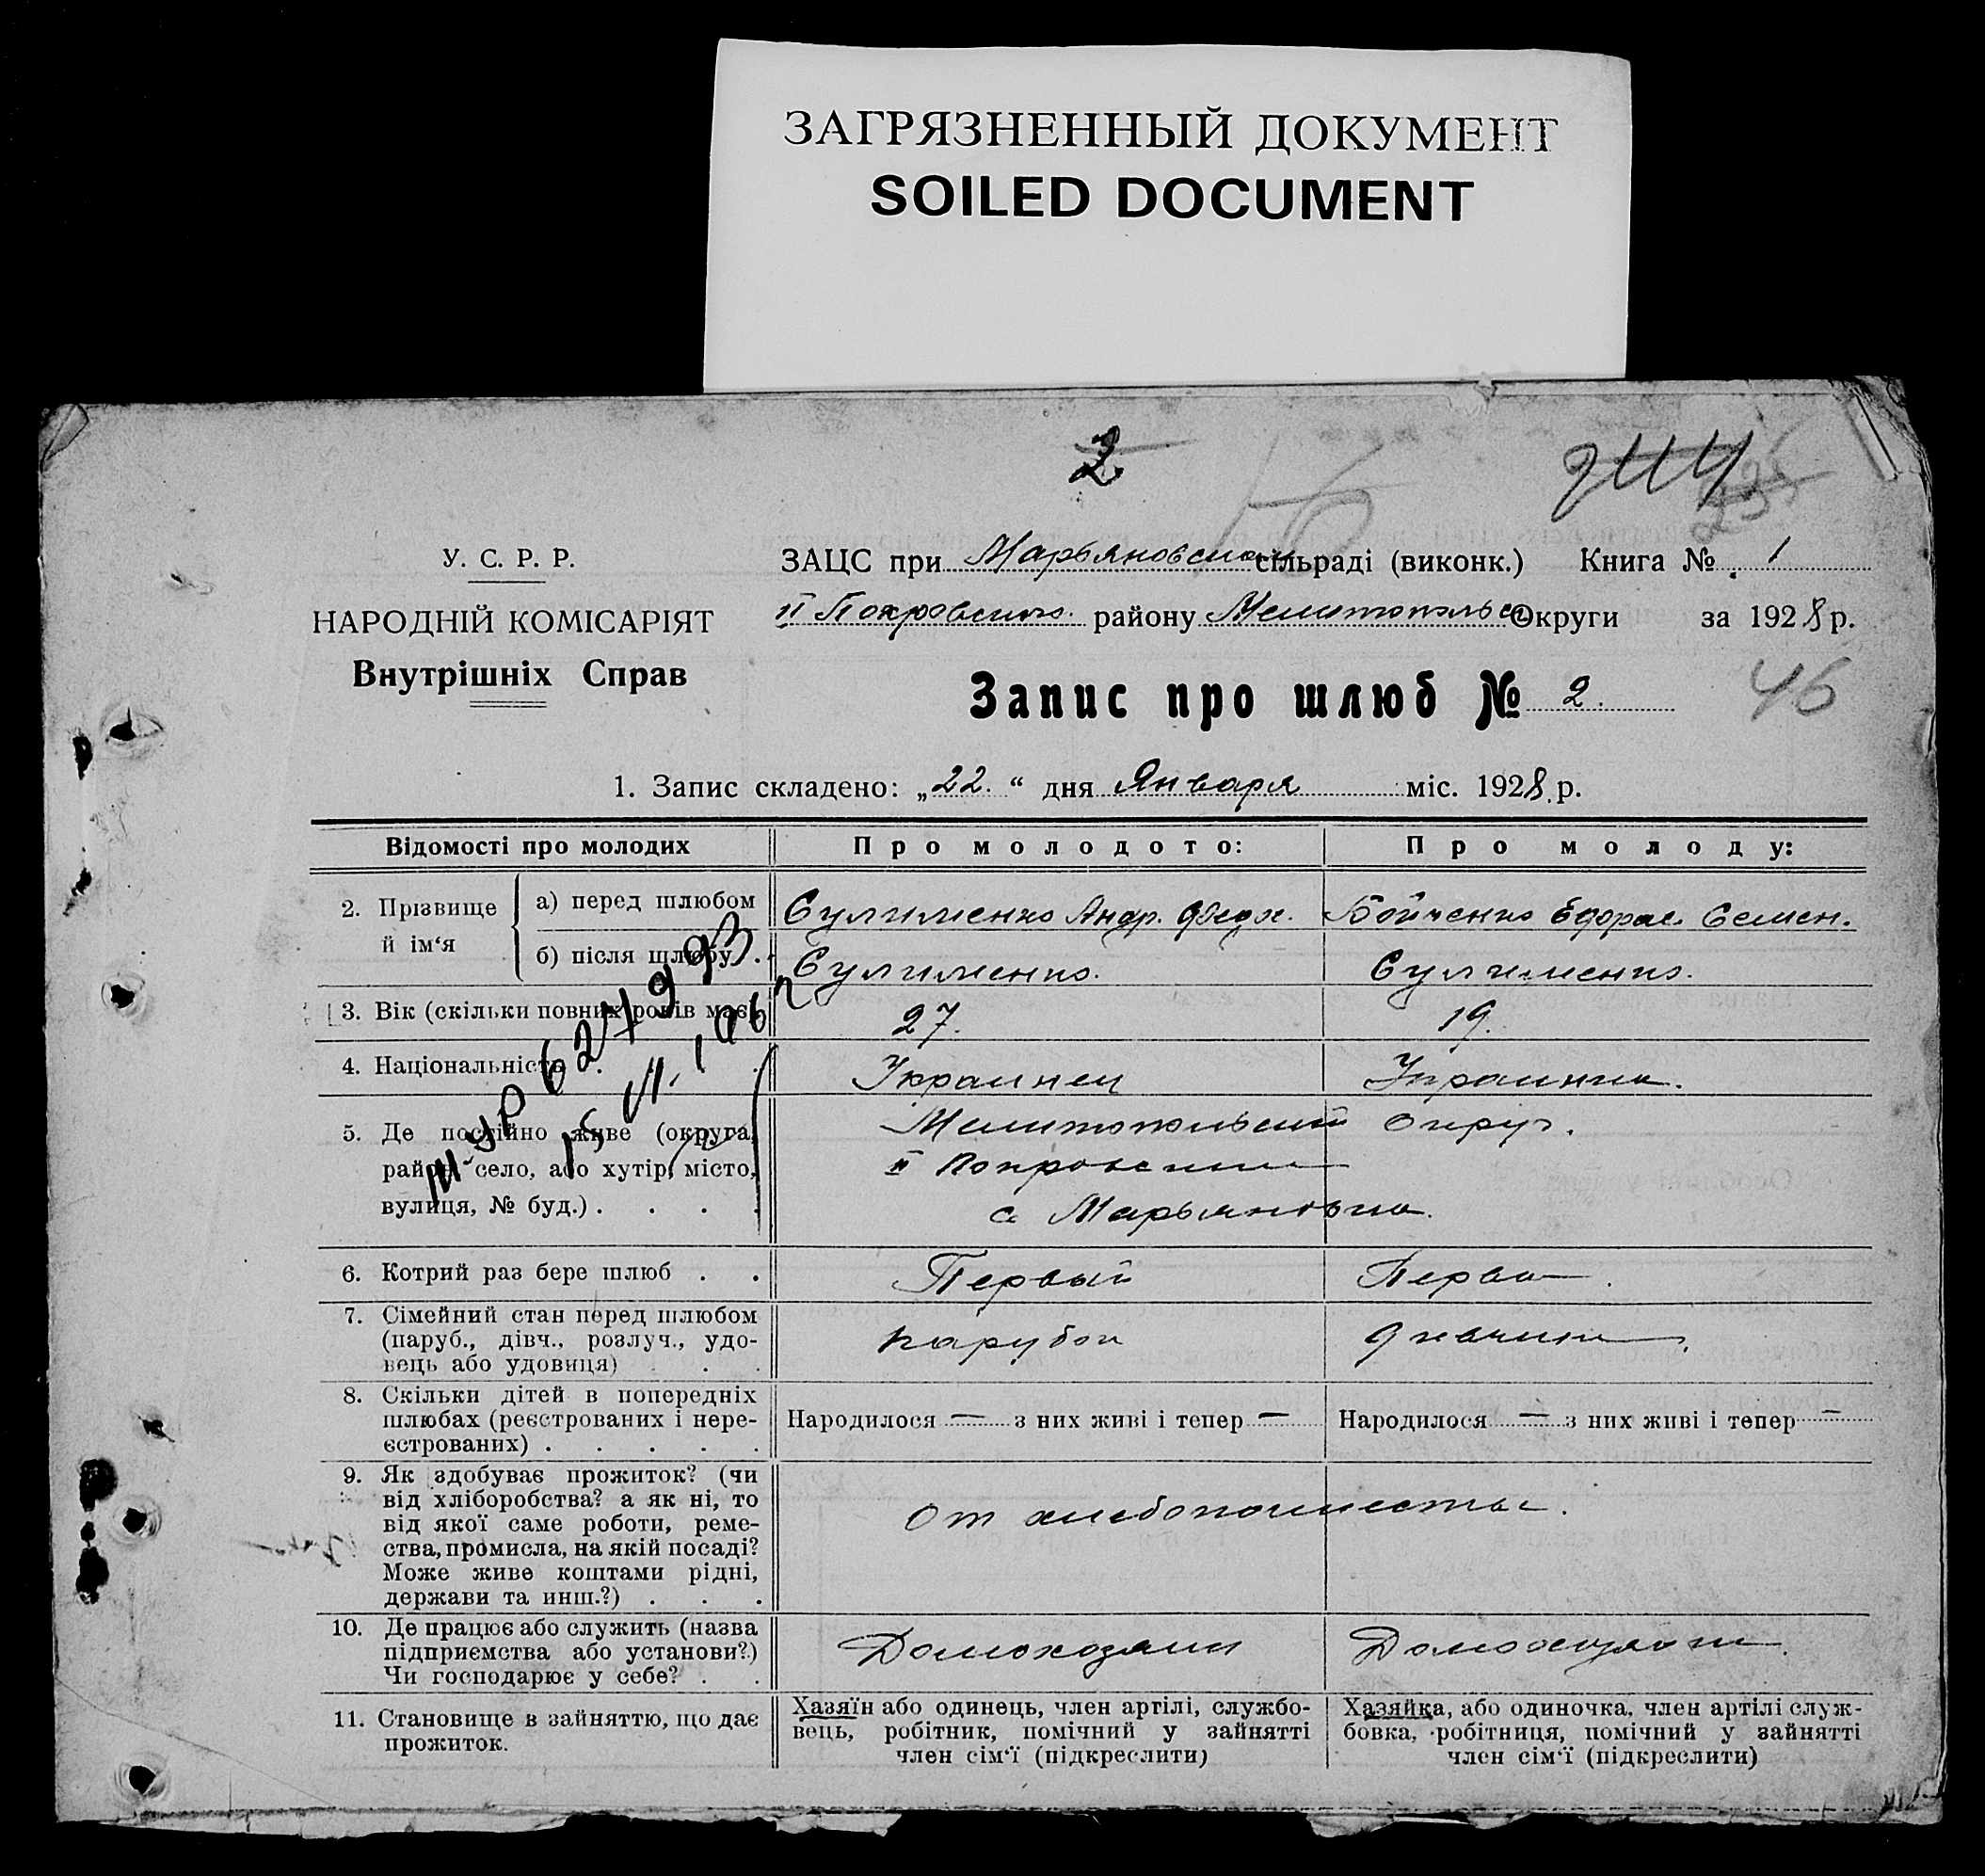 ЗАГРЯЗНЕННЫЙ ДОКУМЕНТ
SOILED DOCUMENT
2
46
У. С. Р. Р.
НАРОДНІЙ КОМІСАРІЯТ
Внутрішніх Справ
ЗАЦС при Марьяновском сільраді (виконк.) Книга № 1
II Покровского району Мелитопольс Округи за 1928 р.
Запис про шлюб № 2.
1. Запис складено: „22“ дня Января міс. 1928 р.
Відомості про молодих Про молодого: Про молоду:
2. Прізвище й ім‘я
а) перед шлюбом Сулименко Андр. Федос. Бойченко Ефрос. Семен.
б) після шлюбу Сулименко. Сулименко.
3. Вік (скільки повних років має) 27. 19.
4. Національність Украинец Украинка.
5. Де постійно живе (округа, район, село, або хутір, місто, вулиця, № буд.)
Мелитопольский Округ.
II Покровский
с Марьяновка.
М-УР 627993
15 VI. 1962
6. Котрий раз бере шлюб Первый Первый
7. Сімейний стан перед шлюбом
(паруб., дівч., розлуч., удо-
вець або удовиця)
парубок дивчина
8. Скільки дітей в попередніх
шлюбах (реєстрованих і нере-
єстрованих)
Народилося — з них живі і тепер — Народилося — з них живі і тепер —
9. Як здобуває прожиток? (чи
від хліборобства? а як ні, то
від якої саме роботи, реме-
ства, промисла, на якій посаді?
Може живе коштами рідні,
держави та инш.?)
От хлебопашества.
10. Де працює або служить (назва
підприємства або установи?)
Чи господарює у себе?
Домохозяин
11. Становище в зайняттю, що дає
прожиток.
Хазяїн або одинець, член артілі, службо-
вець, робітник, помічний у зайнятті
член сім‘ї (підкреслити)
Хазяйка, або одиночка, член артілі служ-
бовка, робітниця, помічний у зайнятті
член сім‘ї (підкреслити)